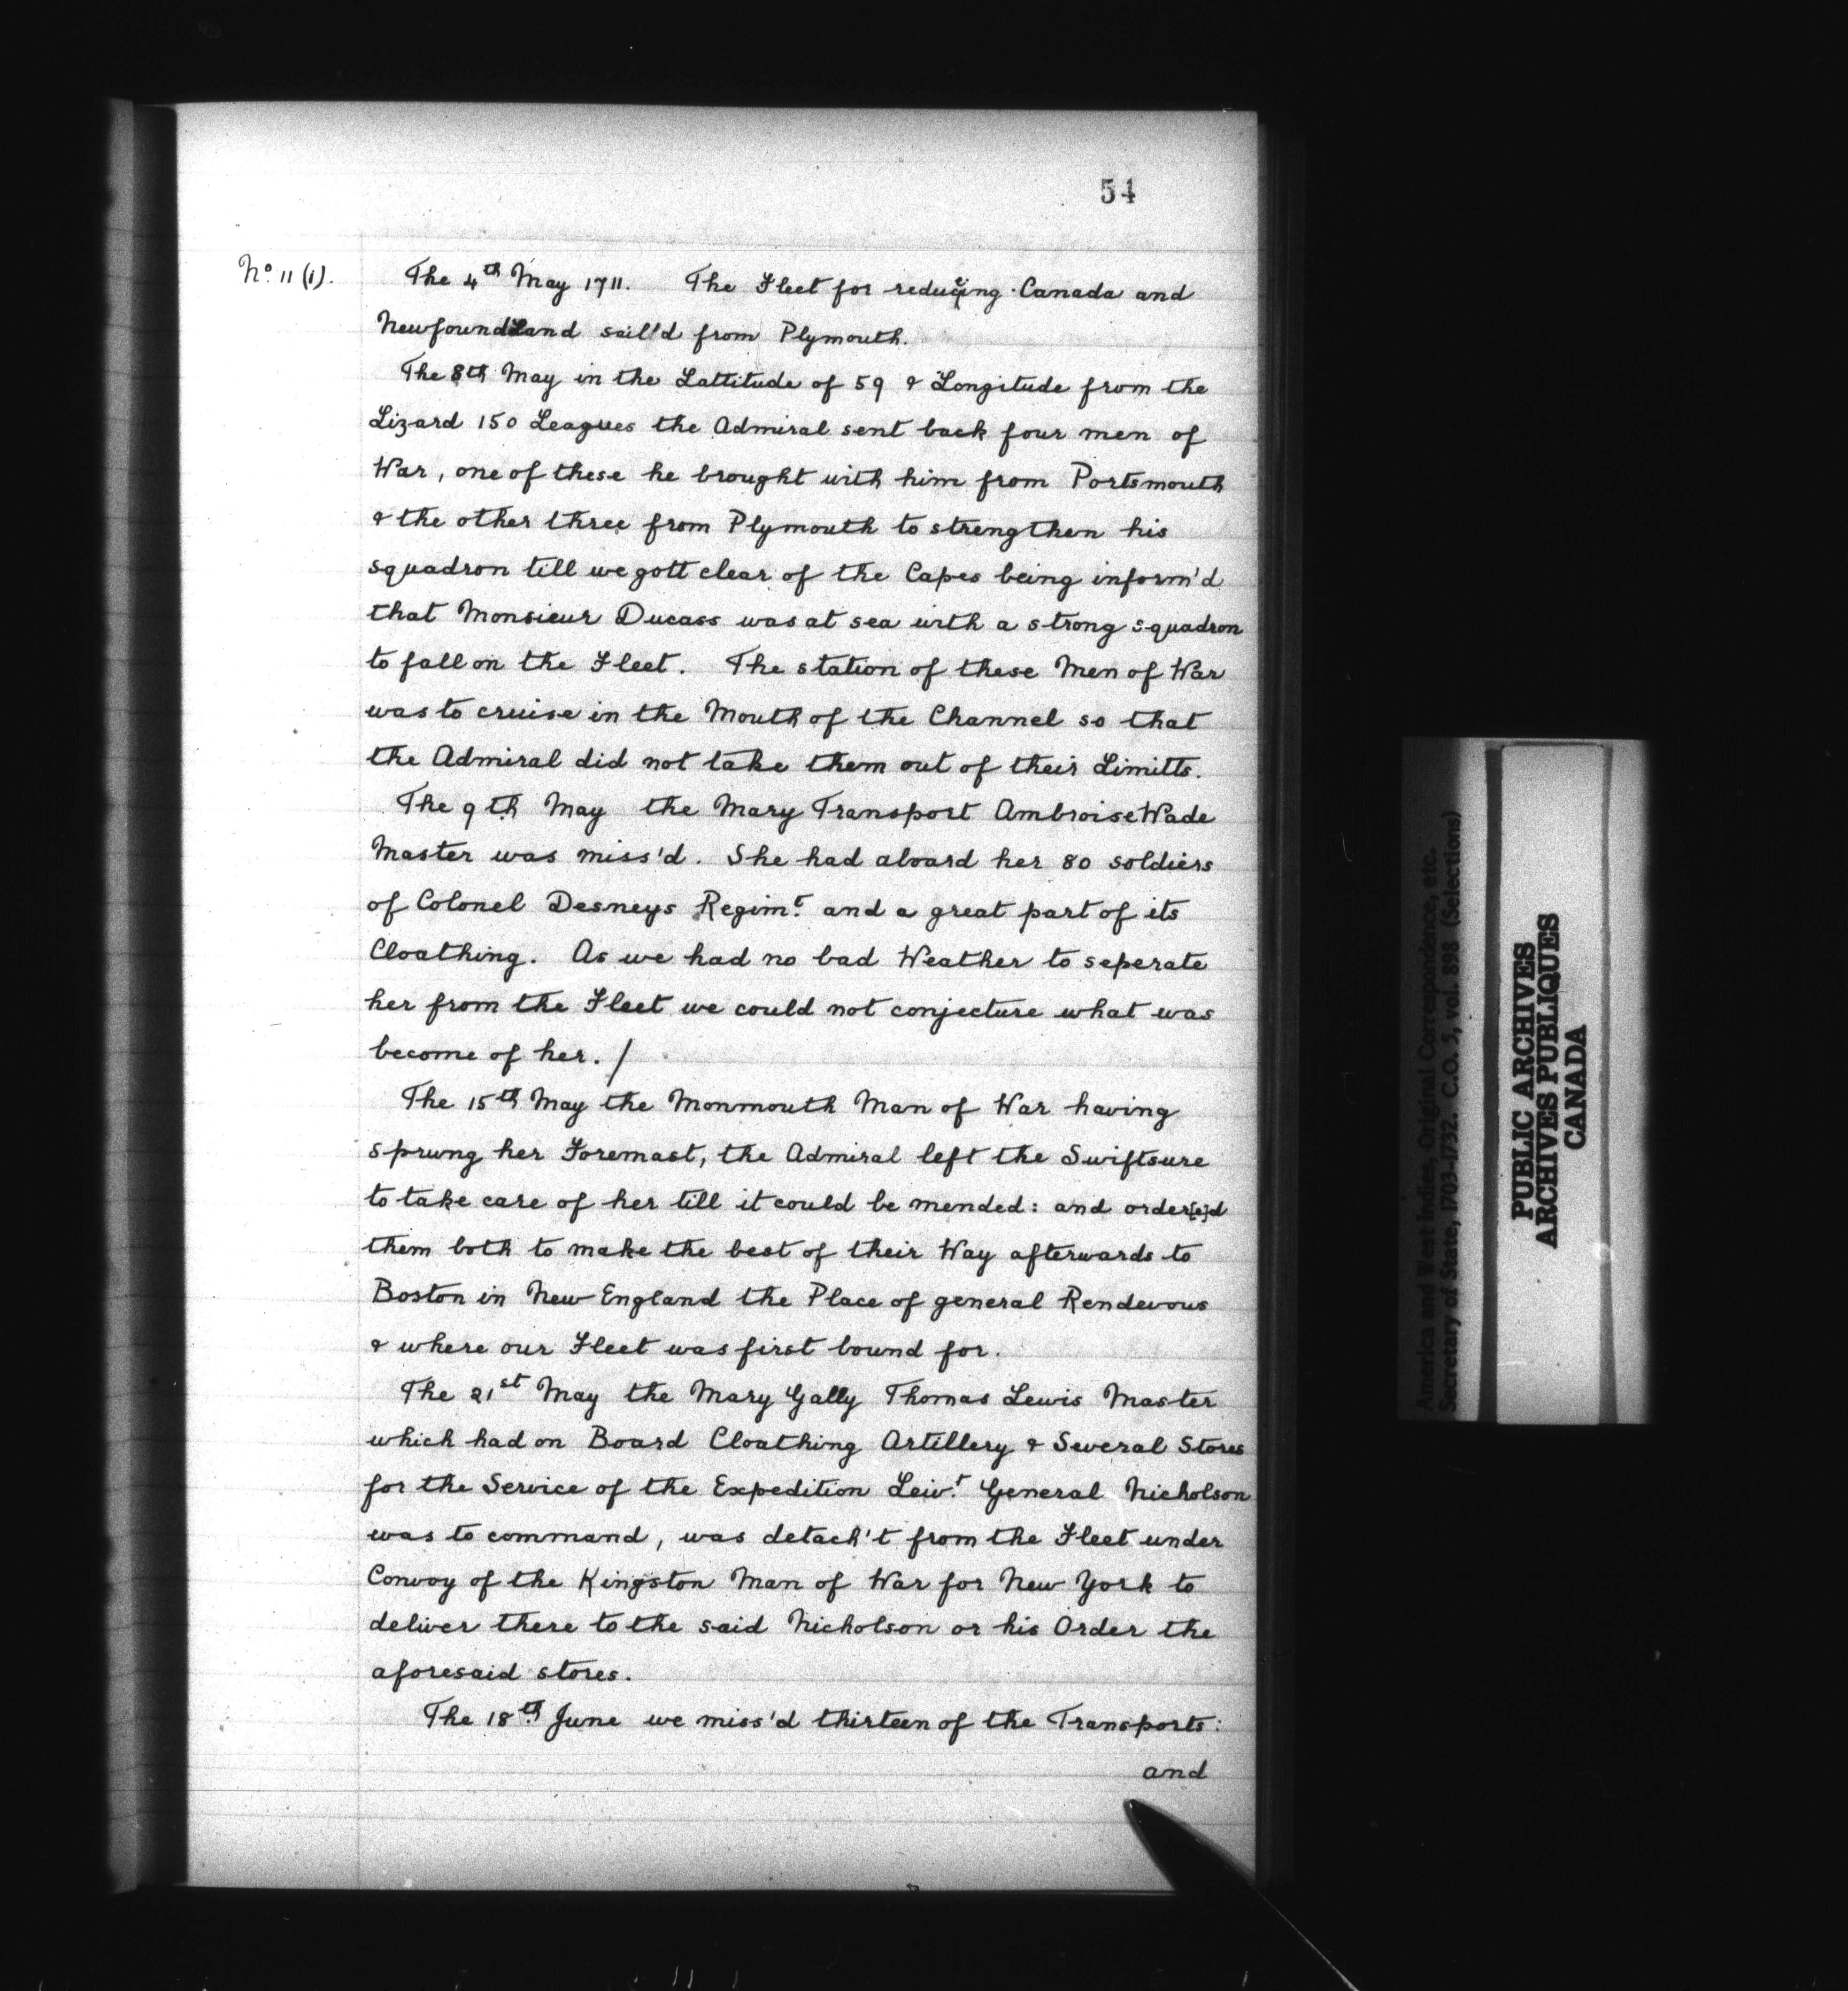 54
No. 11 (1).
The 4th May 1711. The Fleet for reducing Canada and
Newfoundland sail'd from Plymouth.
The 8th May in the Lattitude of 59 & Longitude from the
Lizard 150 Leagues the Admiral sent back four men of
War, one of these he brought with him from Portsmouth
& the other three from Plymouth to strengthen his
squadron till we gott clear of the Capes being inform'd
that Monsieur Ducass was at sea with a strong squadron
to fall on the Fleet. The station of these Men of War
was to cruise in the Mouth of the Channel so that
the Admiral did not take them out of their Limitts.
The 9th May the Mary Transport Ambroise Wade
Master was miss'd. She had aboard her 80 soldiers
of Colonel Desneys Regimt. and a great part of its
Cloathing. As we had no bad Weather to seperate
her from the Fleet we could not conjecture what was
become of her. /
The 15th May the Monmouth Man of War having
sprung her Foremast, the Admiral left the Swiftsure
to take care of her till it could be mended: and order[e]d
them both to make the best of their Way afterwards to
Boston in New England the Place of general Rendevous
& where our Fleet was first bound for.
The 21st May the Mary Gally Thomas Lewis Master
which had on Board Cloathing Artillery & Several Stores
for the Service of the Expedition Leivt. General Nicholson
was to command, was detach't from the Fleet under
Convoy of the Kingston Man of War for New York to
deliver there to the said Nicholson or his Order the
aforesaid stores.
The 18th June we miss'd thirteen of the Transports:
and
America and West Indies, Original Correspondence, etc.
Secretary of State, 1703-1732. C.O. 5, vol. 898 (Selections)
PUBLIC ARCHIVES
ARCHIVES PUBLIQUES
CANADA